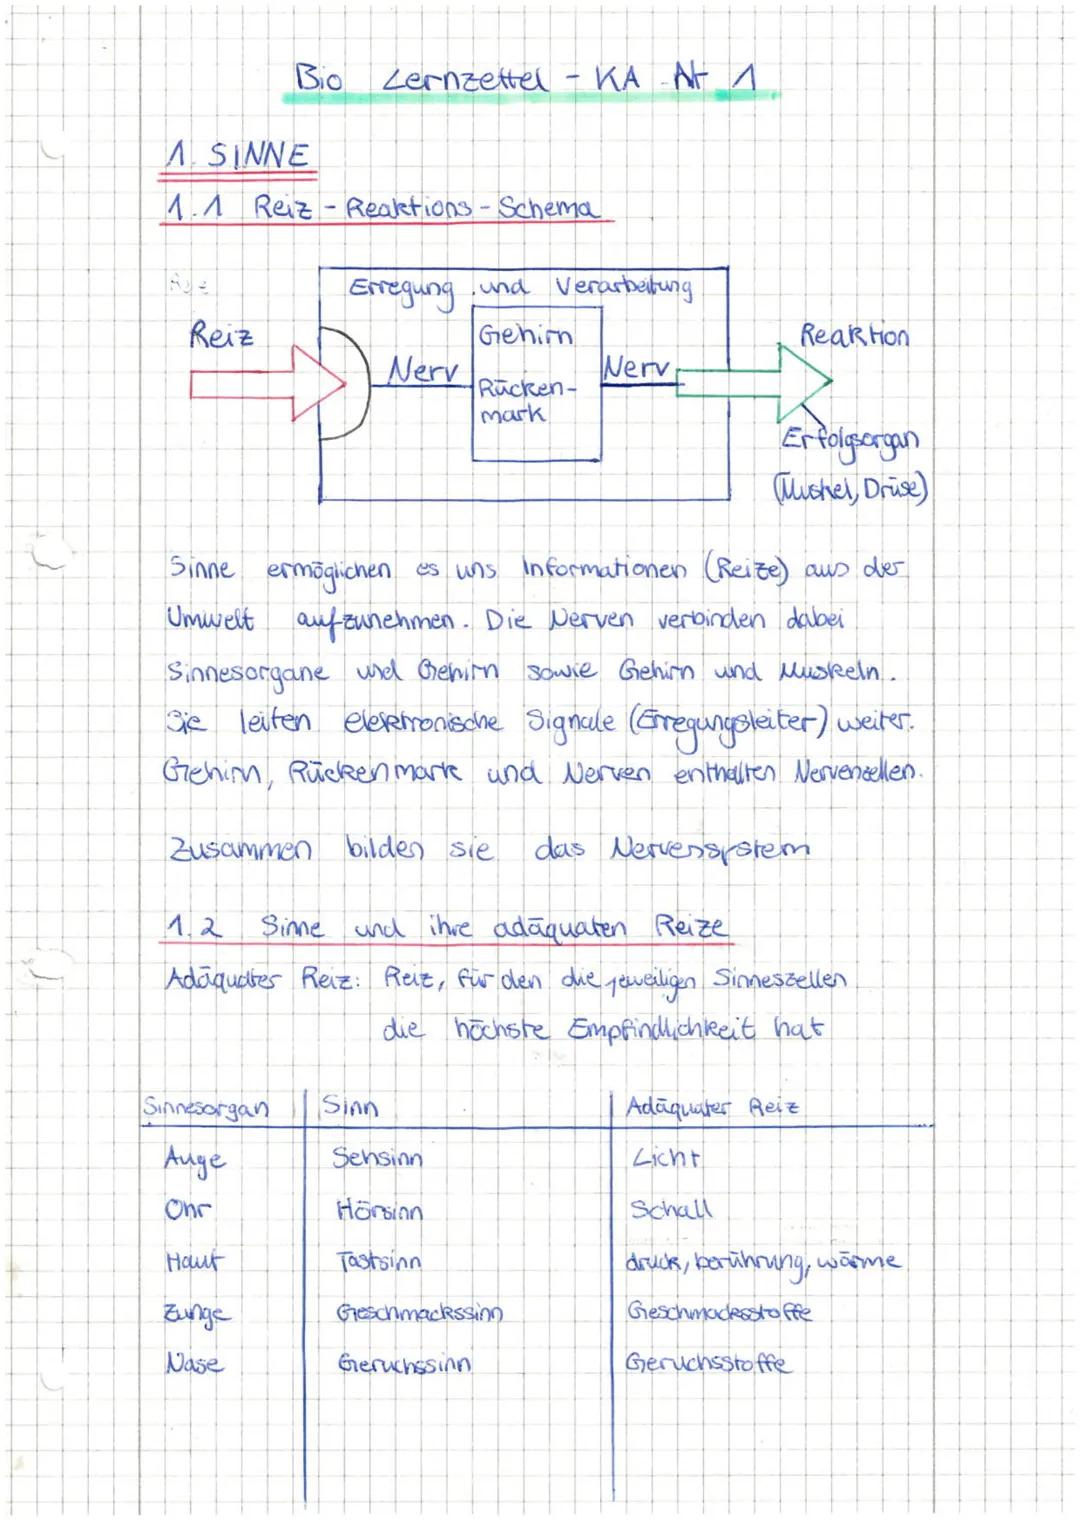 Bio Lernzettel - KA Nr 1
1. SINNE
1.1 Reiz - Reaktions - Schema
Erregung und Verarbeitung
Reiz
Gehirn
Reaktion
Nerv
Nerv
Rücken-
mark
Erfolgsorgan
(Muskel, Drüse)
Sinne ermöglichen es uns Informationen (Reize) aus der
Umwelt aufzunehmen. Die Nerven verbinden dabei
Sinnesorgane und Gehirn sowie Gehirn und Muskeln.
Sie leiten elektronische Signale (Erregungsleiter) weiter.
Gehirn, Rückenmark und Nerven enthalten Nervenzellen.
Zusammen bilden sie das Nervensystem
1.2 Sinne und ihre adäquaten Reize
Adäquater Reiz: Reiz, für den die jeweiligen Sinneszellen
die höchste Empfindlichkeit hat
Sinnesorgan Sinn Adäquater Reiz
Auge Sehsinn Licht
Ohr Hörsinn Schall
Haut Tastsinn druck, berührung, wärme
Zunge Geschmackssinn Geschmacksstoffe
Nase Geruchssinn Geruchsstoffe